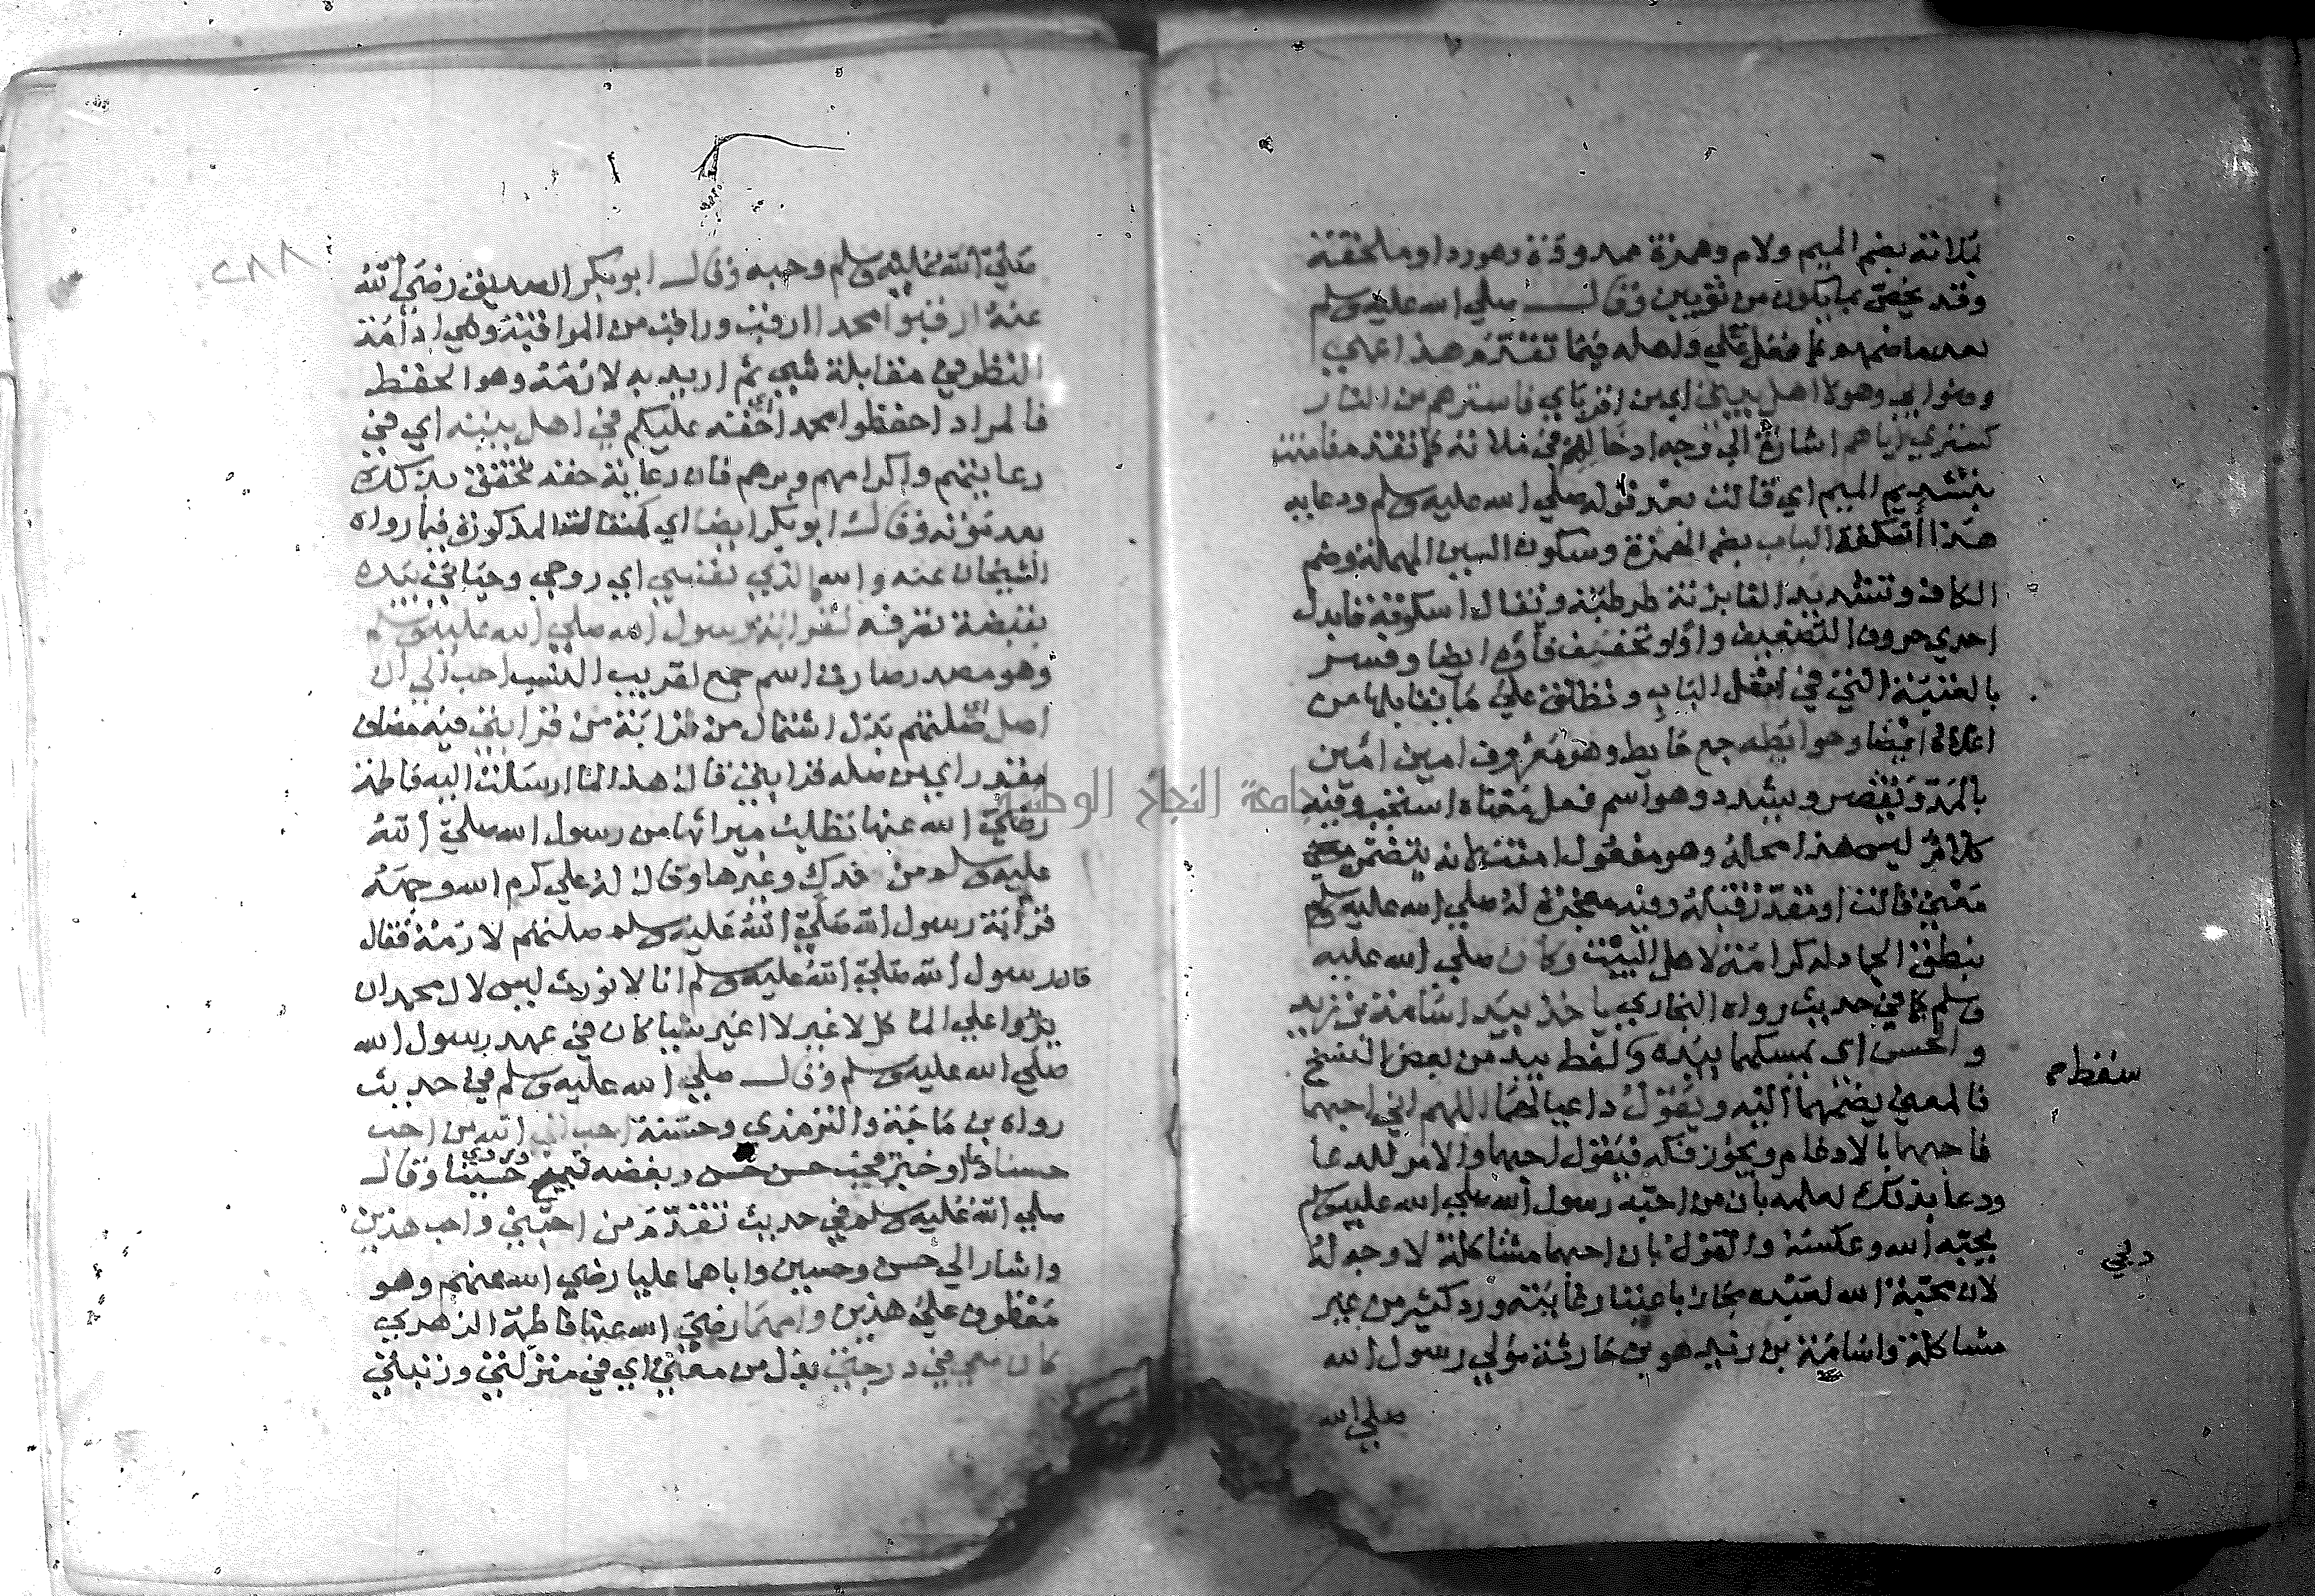 بملاته بضم الميم ولام وهمزة ممدودة وهو رداء وملحفته
وقد يخص بما يكون من ثوبين وقال صلي الله عليه وسلم
بعد ما ضمهم كما فعل علي ولعله فيما تقدم هذا عمي
وصنو ابي وهولا اهل بيتي اي من اقرباي فاسترهم من النار
كستري اياهم اشارة الي وجه ادخالهم في ملاته كما تقدم فامنت
بتشديد الميم اي قالت بعد قوله صلي الله عليه وسلم ودعايه
هذا اسكفة الباب بضم الهمزة وسكون السين المهملة وضم
الكاف وتشديد الفا بزنة طرطبة ويقال اسكوفة فابدل
احدي حروف التضعيف واوا وتخفيف فاوه ايضا وفسر
بالعتبة التي في اسفل الباب وتطلق علي ما يقابلها من
اعلاه ايضا وحوايطه جمع حايط وهو معروف امين امين
بالمد وتقصر ويشدد وهو اسم فعل معناه استجب وفيه
كلام ليس هذا محله وهو مفعول امنت لانه يتضمن معني
معني قالت او مقدر قبله وفيه معجزة له صلي الله عليه وسلم
بنطق الجماد له كرامة لاهل البيت وكان صلي الله عليه
وسلم كما في حديث رواه البخاري ياخذ بيد اسامة بن زيد
والحسن اي يمسكهما بيده ولفظ بيد من بعض النسخ
سقط م
فالمعني يضمهما اليه ويقول داعيا لهما اللهم اني احبهما
فاحبهما بالادغام ويجوز فكه فيقول احببهما والامر للدعا
ودعا بذلك لعلمه بان من احبه رسول الله صلي الله عليه وسلم
يحبه الله وعكسه والقول بان احبهما مشاكلة لا وجه له
دلجي
لان محبة الله لعبده مجاز باعتبار غايته ورد كثير من غير
مشاكلة واسامة بن زيد هو بن حارثة مولي رسول الله
صلي الله
٢٨٨
صلي الله عليه وسلم وحبه وقال ابو بكر الصديق رضي الله
عنه ارقبوا محمدا ارقب وراقب من المراقبة وهي ادامة
النظر في مقابلة شي ثم اريد به لازمه وهو الحفظ
فالمراد احفظوا محمد اي حقه عليكم في اهل بيته اي في
رعايتهم واكرامهم وبرهم فان رعاية حقه تحقق بذلك
بعد موته وقال ابو بكر ايضا اي كمقالته المذكورة فيما رواه
الشيخان عنه والله الذي نفسي اي روحي وحياتي بيده
بقبضة تصرفه لقرابة رسول الله صلي الله عليه وسلم
وهو مصدر صار اسم جمع لقريب النسب احب الي ان
اصل اي صلتهم بدل اشتمال من قرابة من قرابتي فيه مضاف
مقدر اي من صلة قرابتي قال هذا لما ارسلت اليه فاطمة
رضي الله عنها تطلب ميراثها من رسول الله صلي الله
عليه وسلم من فدك وغيرها وقال له علي كرم الله وجهه
قرابة رسول الله صلي الله عليه وسلم صلتهم لازمة فقال
قال رسول الله صلي الله عليه وسلم انا لا نورث ليس لال محمد ان
يزيدوا علي الماكل لا غير لا اغير شيا كان في عهد رسول الله
صلي الله عليه وسلم وقال صلي الله عليه وسلم في حديث
رواه بن ماجة والترمذي وحسنه احب الله من احب
حسنا دعا او خبر فحب حسن حسن وبغضه قبيح ويروي حسينا وقال
صلي الله عليه وسلم في حديث تقدم من احبني واحب هذين
واشار الي حسن وحسين واباهما عليا رضي الله عنهم وهو
معطوف علي هذين وامهما رضي الله عنها فاطمة الزهري
كان معي في درجتي بدل من معي اي في منزلتي ورتبتي
جامعة النجاح الوطنية